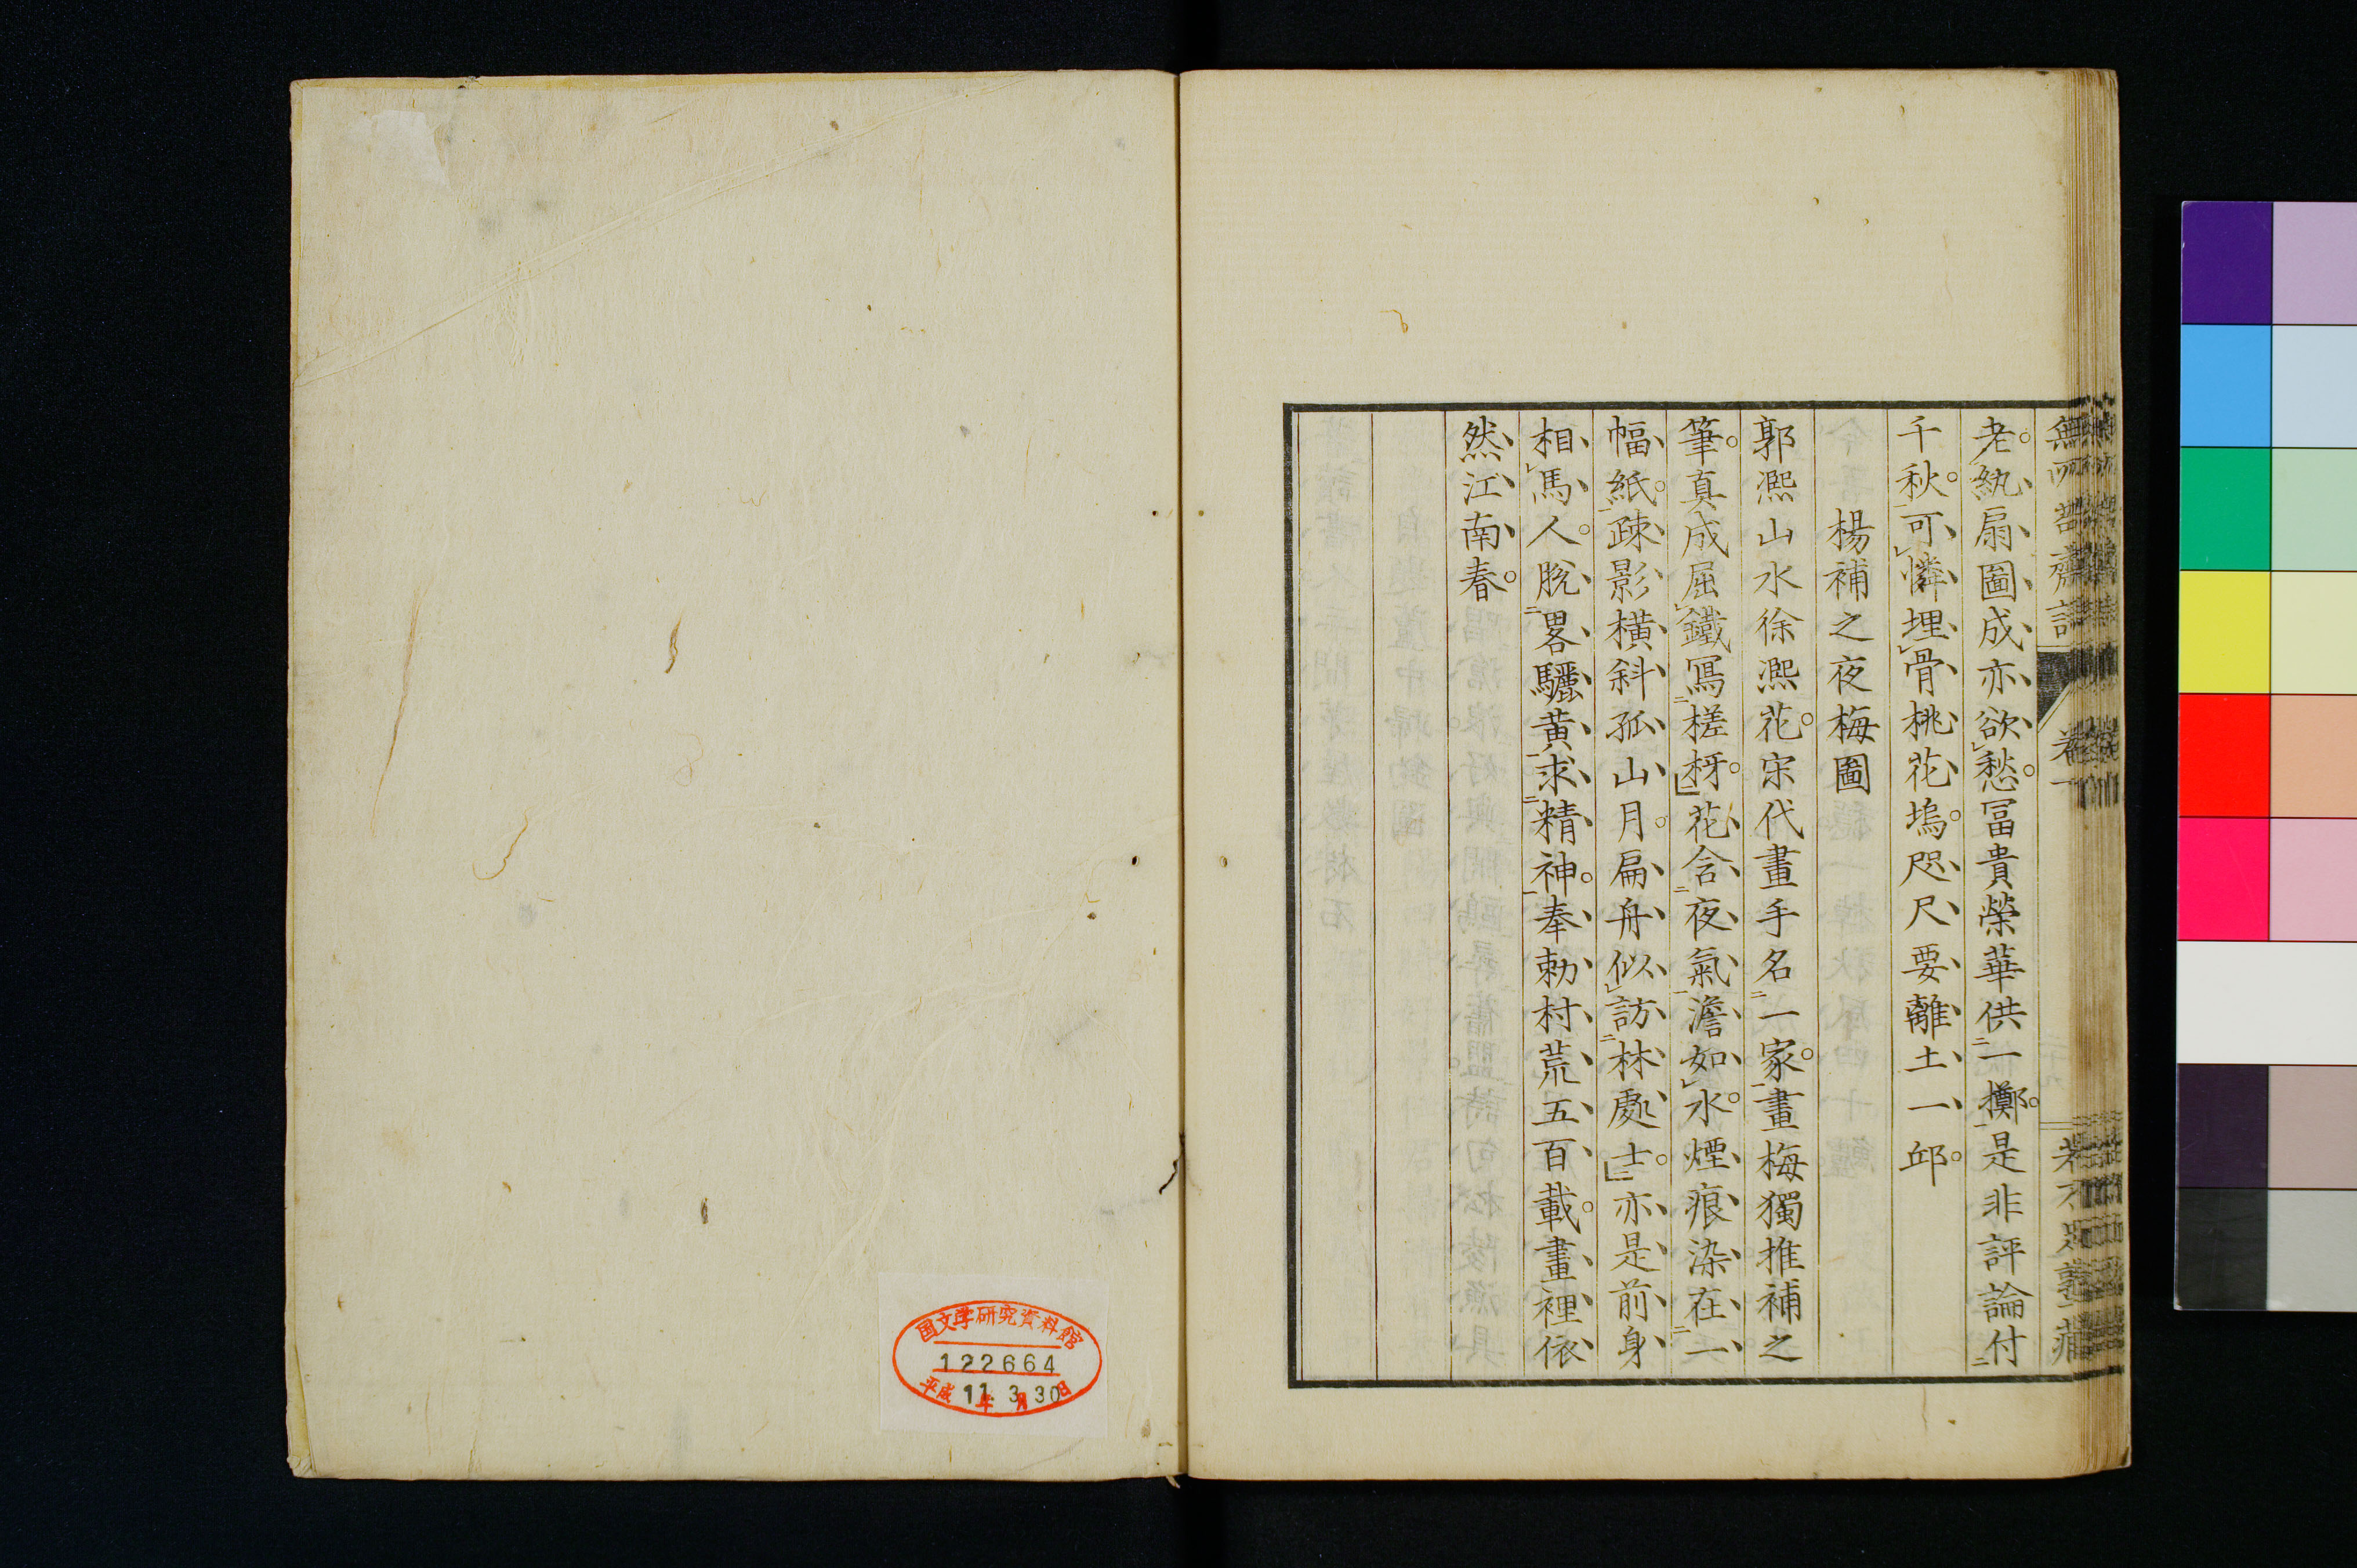 老紈扇圖成亦欲愁冨貴榮華供一擲是非評論付
千秋可憐埋骨桃花塢咫尺要離土一邱
楊補之夜梅圖
郭凞山水徐凞花宋代畫手名一家畫梅獨推補之
筆真成屈鐵冩槎枒花含夜氣澹如水煙痕染在一
幅紙疎影横斜孤山月扁舟似訪林處士亦是前身
相馬人脫畧驪黄求精神奉勅村荒五百載畫裡依
然江南春
国文学研究資料館
122664
平成 11年 3月 30日